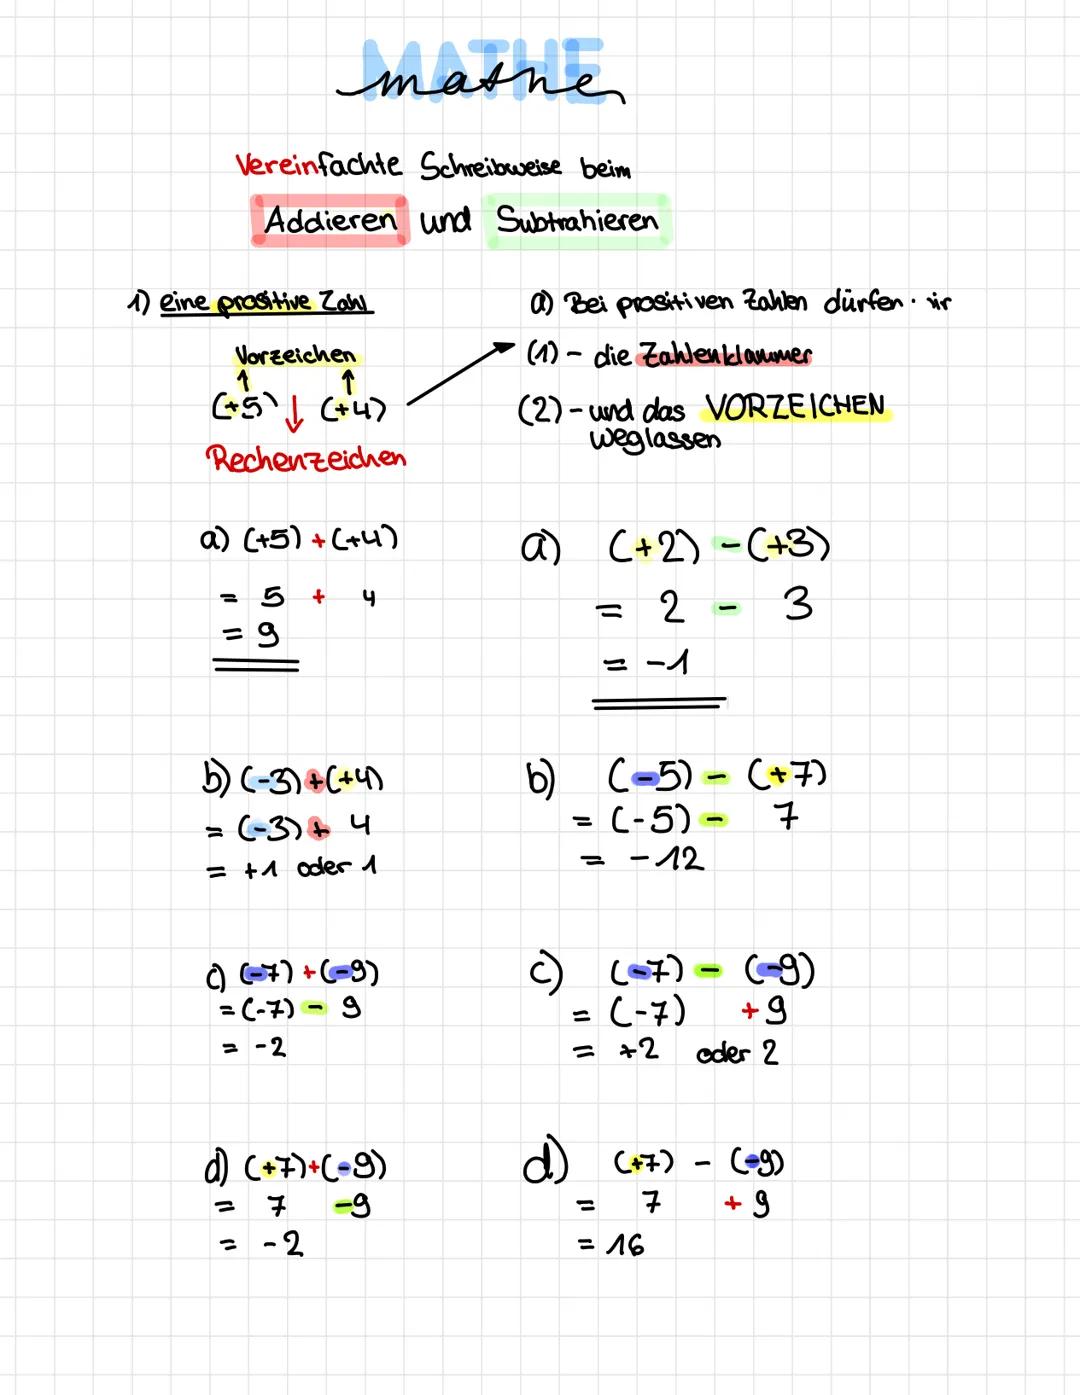 MATHE
mathe
Vereinfachte Schreibweise beim
Addieren und Subtrahieren
1) eine prositive Zahl
Vorzeichen
(+5) (+4)
Rechenzeichen
a) Bei prositiven Zahlen dürfen wir
(1) - die Zahlenklammer
(2) - und das VORZEICHEN
weglassen
a) (+5) + (+4)
= 5 + 4
= 9
a) (+2) - (+3)
= 2 - 3
= -1
b) (-3) + (+4)
= (-3) + 4
= +1 oder 1
b) (-5) - (+7)
= (-5) - 7
= -12
c) (-7) + (-9)
= (-7) - 9
= -2
c) (-7) - (-9)
= (-7) +9
= +2 oder 2
d) (+7)+(-9)
= 7 -9
= -2
d) (+7) - (-9)
= 7 + 9
= 16